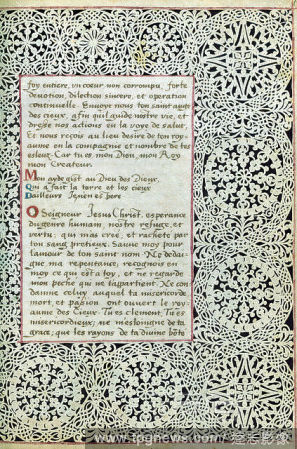 foy entiere, un coeur non corrompu, forte
devotion, dilection sincere, et operation
continuelle. Envoye nous ton saint ange
des cieux, afin qu'il guide nostre vie, et
dresse nos actions en la voye de salut,
Et nous reçois au lieu desire de ton roy-
aume en la compagnie et nombre de tes
esleuz. Car tu es, mon Dieu, mon Roy
mon Createur.
Mon ayde gist au Dieu des Dieux,
Qui a fait la terre et les cieux
D'ailleurs Je n'en espere
O Seigneur Jesus Christ, esperance
du genre humain, nostre refuge, et
vertu: qui m'as creé, et racheté par
ton sang pretieux. Sauve moy pour
l'amour de ton saint nom. Ne dedai-
gne ma repentance; recognois en
moy ce qui est a toy, et ne regarde
mon peche qui ne t'appartient. Ne con
damne celuy auquel ta misericorde
mort, et passion ont ouvert le roy-
aume des Cieux. Tu es clement, Tu es
misericordieux; ne m'eslongne de ta
grace; que les rayons de ta divine bôte
www.tpgnews.com / 達志影像